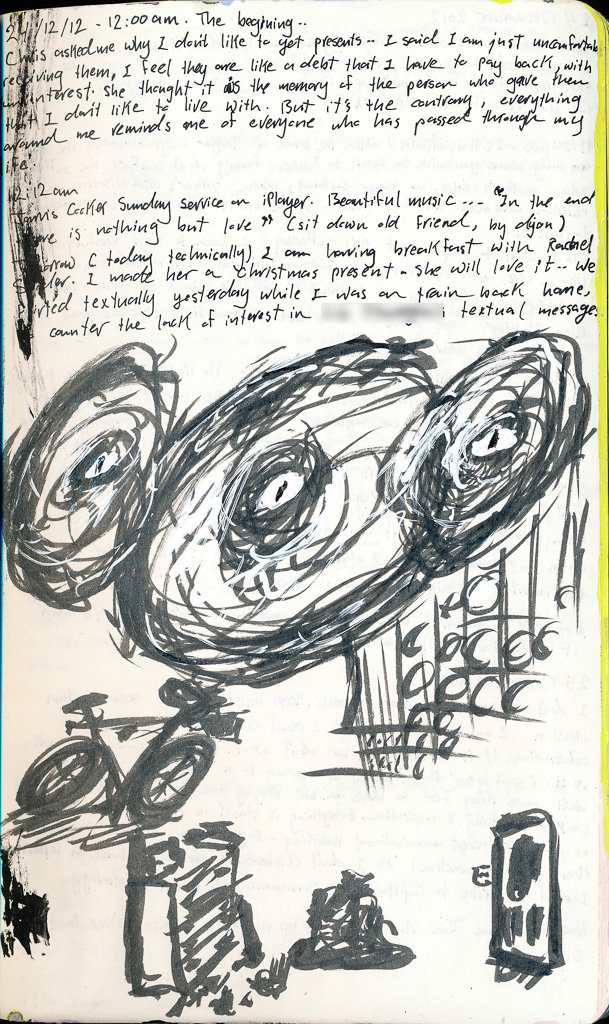 24/12/12 - 12:00am. The begining..
Chris asked me why I don't like to get presents.. I said I am just uncomfortable
receiving them, I feel they are like a debt that I have to pay back, with
interest. She thought it is the memory of the person who gave them
that I don't like to live with. But it's the contrary, everything
around me reminds me of everyone who has passed through my
life.
12:12am
Jarvis Cocker Sunday service on iPlayer. Beautiful music... "In the end
there is nothing but love" (sit down old friend, by dion)
Tomorrow (today technically) I am having breakfast with Rachel
I made her a Christmas present. She will love it.. we
textually yesterday while I was on train back home,
counter the lack of interest in textual message.